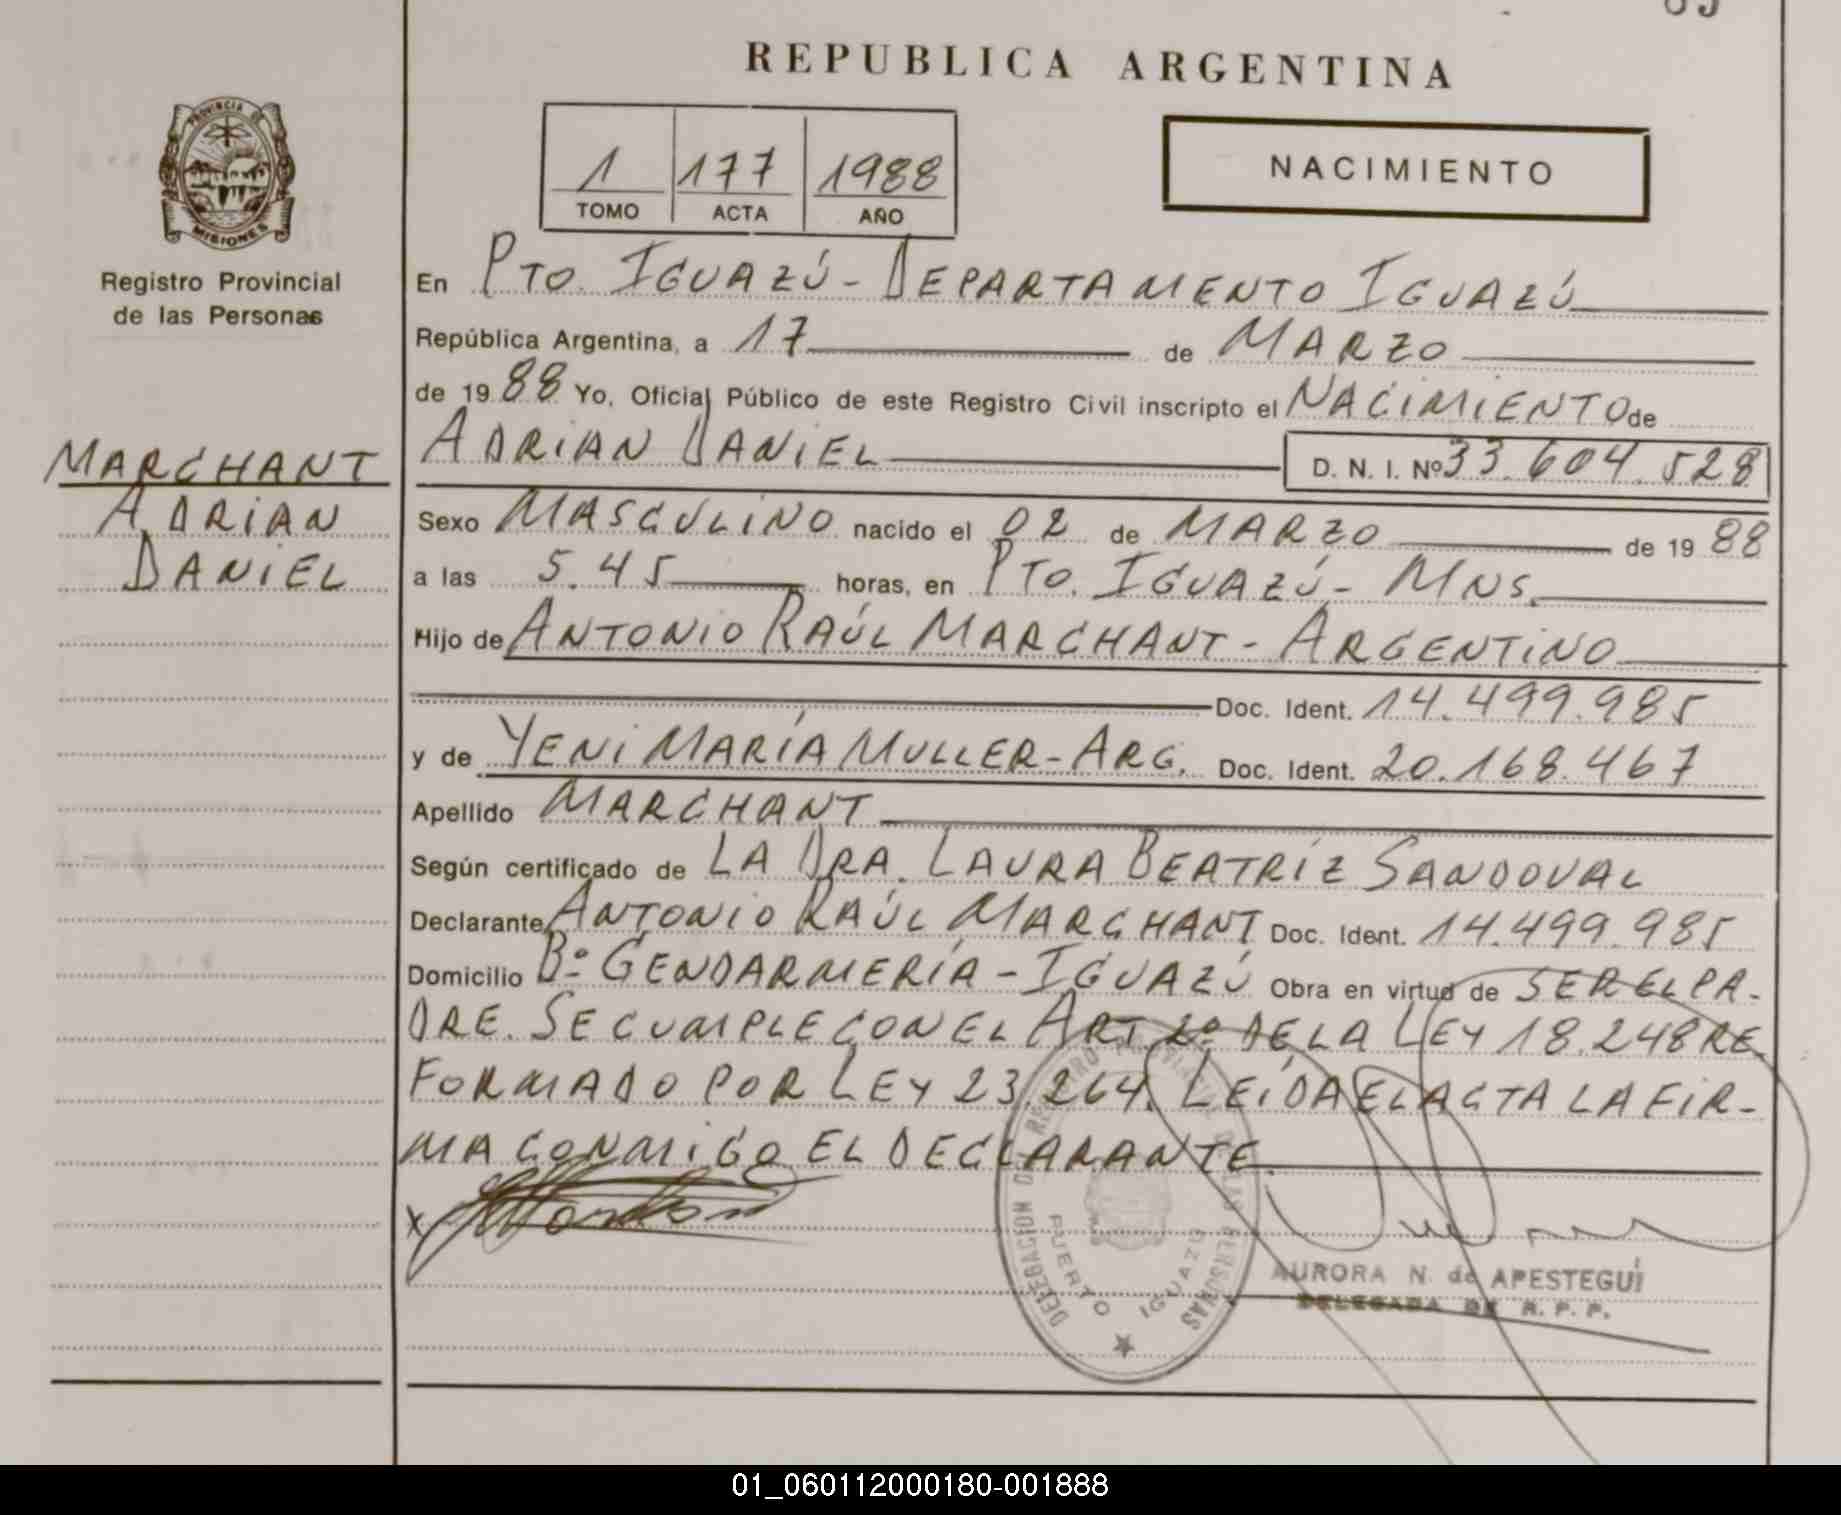 REPUBLICA ARGENTINA
PROVINCIA DE
MISIONES
Registro Provincial
de las Personas
1 177 1988
TOMO ACTA AÑO
NACIMIENTO
En PTO. IGUAZÚ - DEPARTAMENTO IGUAZÚ
República Argentina, a 17 de MARZO
de 1988 Yo, Oficial Público de este Registro Civil inscripto el NACIMIENTO de
ADRIAN DANIEL D. N. I. Nº 33.604.528
MARCHANT
ADRIAN
DANIEL
Sexo MASCULINO nacido el 02 de MARZO de 1988
a las 5.45 horas, en PTO. IGUAZÚ - MNS.
Hijo de ANTONIO RAÚL MARCHANT - ARGENTINO
Doc. Ident. 14.499.985
y de YENI MARÍA MULLER - ARG. Doc. Ident. 20.168.467
Apellido MARCHANT
Según certificado de LA DRA. LAURA BEATRÍZ SANDOVAL
Declarante ANTONIO RAÚL MARCHANT Doc. Ident. 14.499.985
Domicilio Bº GENDARMERÍA - IGUAZÚ Obra en virtud de SER EL PA-
DRE. SE CUMPLE CON EL ART 2º DE LA LEY 18.248 RE
FORMADO POR LEY 23.264. LEÍDA EL ACTA LA FIR-
MA CONMIGO EL DECLARANTE.
X
DELEGACION DE REGISTRO PROVINCIAL DE LAS PERSONAS
PUERTO IGUAZU
AURORA N. de APESTEGUÍ
DELEGADA DE R. P. P.
01_060112000180-001888